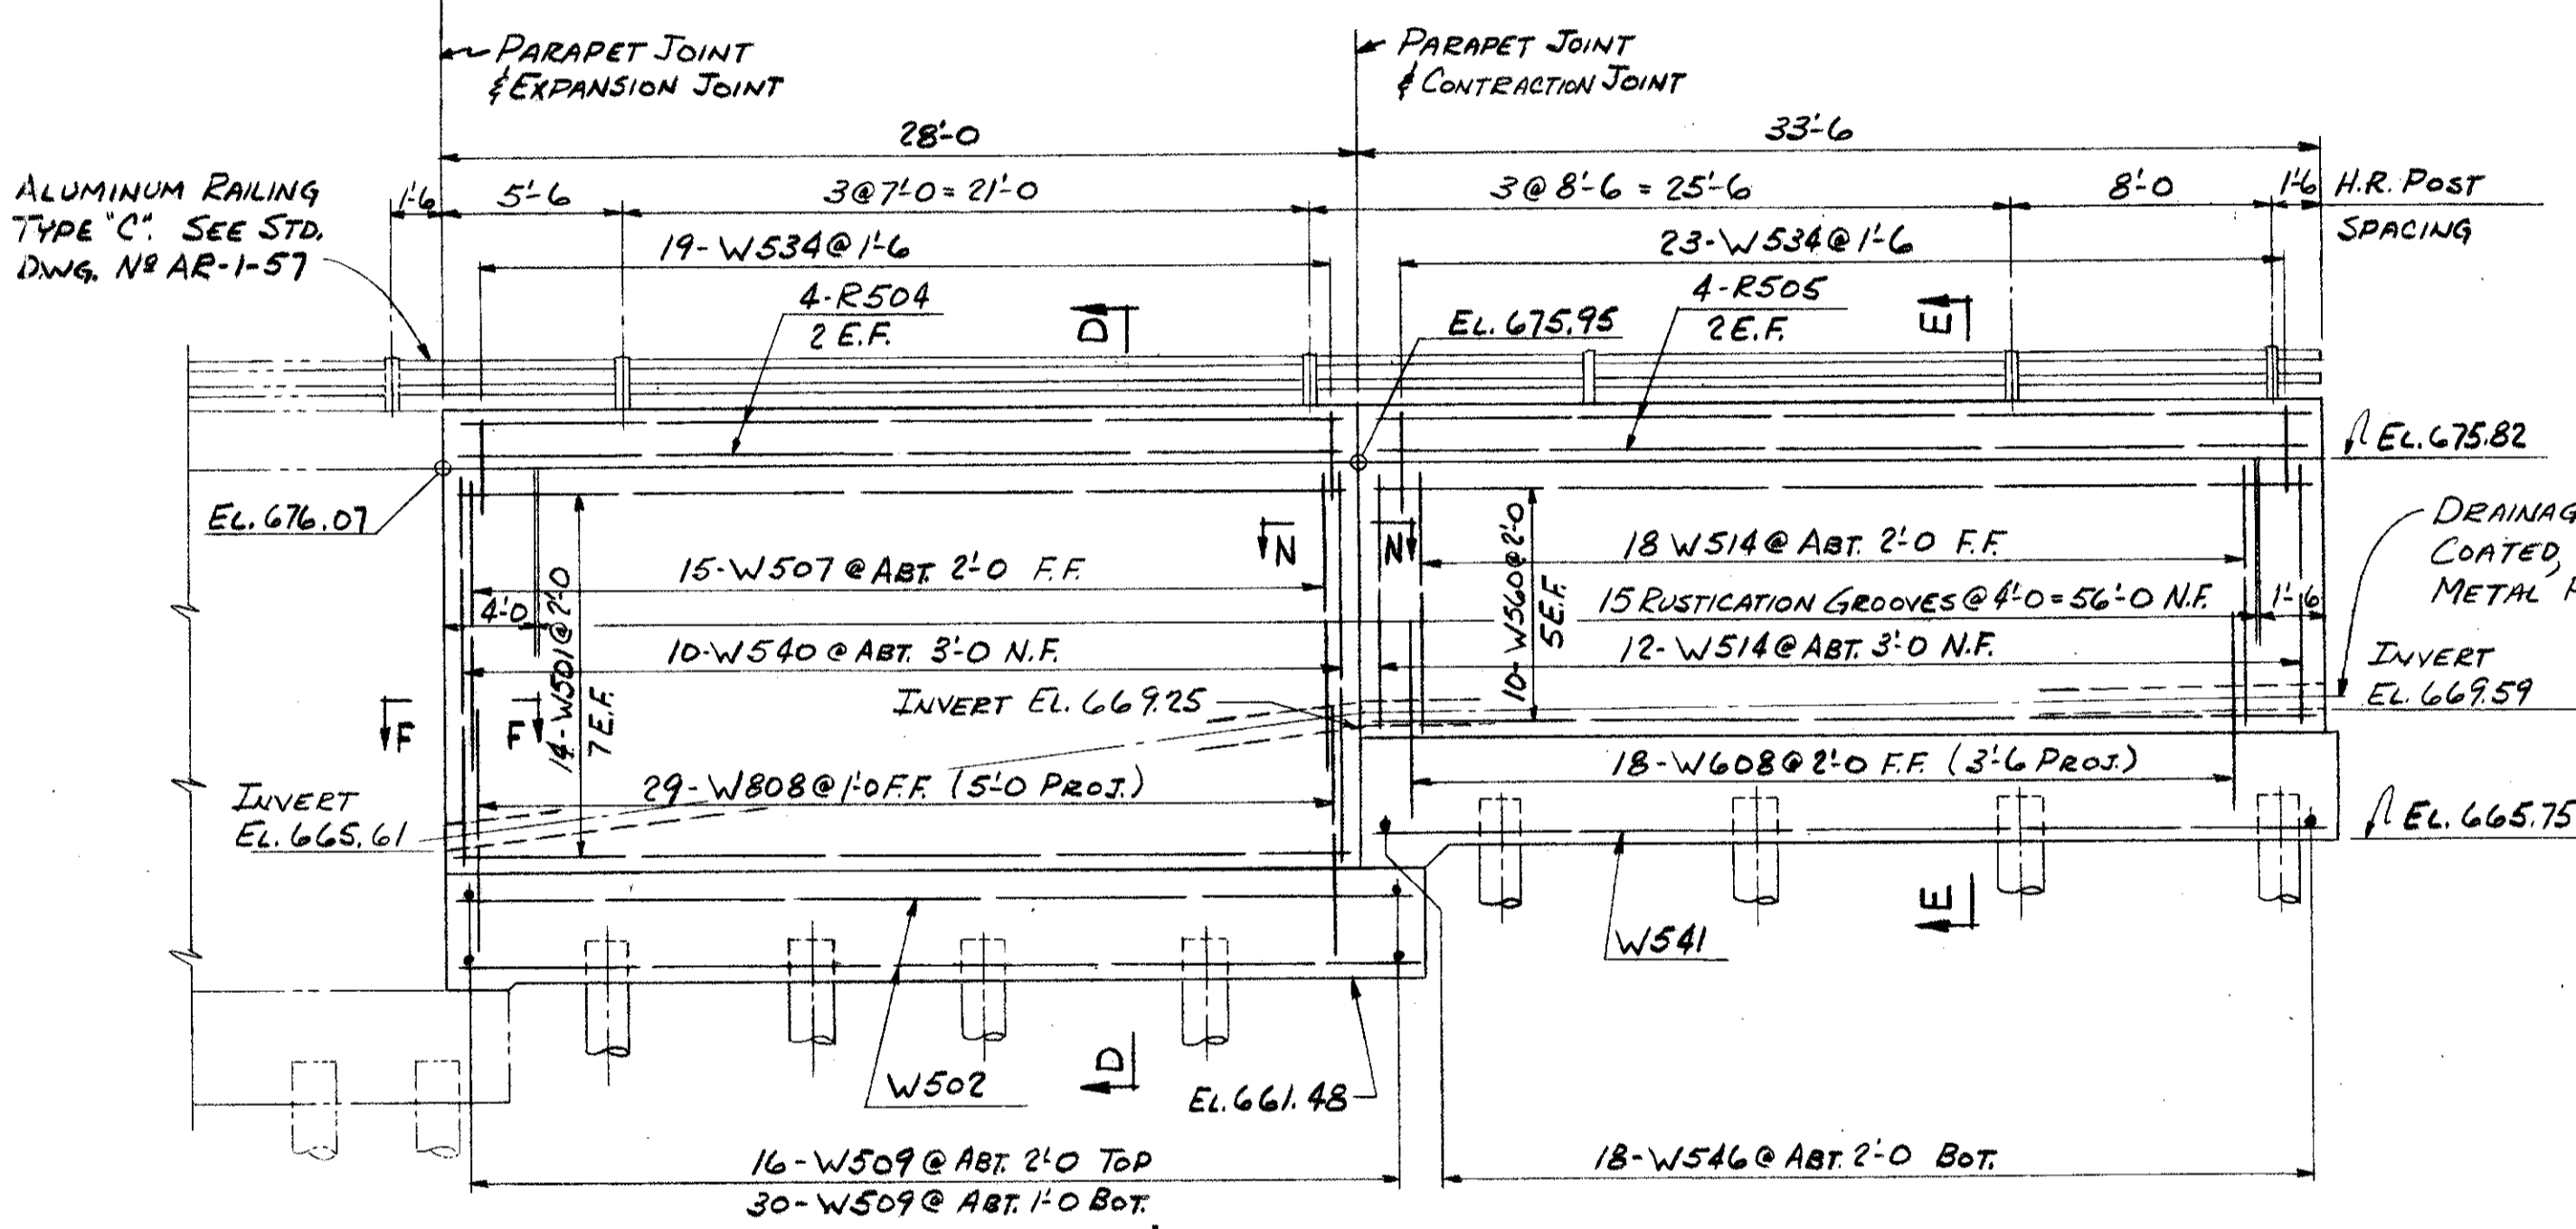 PARAPET JOINT
& EXPANSION JOINT
PARAPET JOINT
& CONTRACTION JOINT
28'-0
33'-6
ALUMINUM RAILING
TYPE "C". SEE STD.
DWG. Nº AR-1-57
1'-6
5'-6
3@7'-0 = 21'-0
3@8'-6 = 25'-6
8'-0
1'-6
H.R. POST
SPACING
19-W534@1'-6
23-W534@1'-6
4-R504
2 E.F.
D
EL. 675.95
4-R505
2 E.F.
E
EL. 675.82
EL. 676.07
N
N
15-W507 @ ABT. 2'-0 F.F.
18 W514 @ ABT. 2'-0 F.F.
DRAINAG
COATED,
METAL
4'-0
14-W501@2'-0
7 E.F.
10-W560@2'-0
5 E.F.
15 RUSTICATION GROOVES @ 4'-0 = 56'-0 N.F.
1'-6
10-W540 @ ABT. 3'-0 N.F.
12-W514 @ ABT. 3'-0 N.F.
INVERT
EL. 669.59
INVERT EL. 669.25
F
F
29-W808 @ 1'-0 F.F. (5'-0 PROJ.)
18-W608 @ 2'-0 F.F. (3'-6 PROJ.)
INVERT
EL. 665.61
EL. 665.75
E
W541
W502
D
EL. 661.48
16-W509 @ ABT. 2'-0 TOP
30-W509 @ ABT. 1'-0 BOT.
18-W546 @ ABT. 2'-0 BOT.